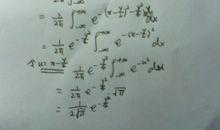 = \frac{1}{2\pi} \int_{-\infty}^{+\infty} e^{-(x-\frac{y}{2})^2 - \frac{y^2}{4}} dx
= \frac{1}{2\pi} e^{-\frac{y^2}{4}} \int_{-\infty}^{+\infty} e^{-(x-\frac{y}{2})^2} dx
令 u = x - \frac{y}{2} = \frac{1}{2\pi} e^{-\frac{y^2}{4}} \int_{-\infty}^{+\infty} e^{-u^2} du
= \frac{1}{2\pi} e^{-\frac{y^2}{4}} \cdot \sqrt{\pi}
= \frac{1}{2\sqrt{\pi}} e^{-\frac{y^2}{4}}